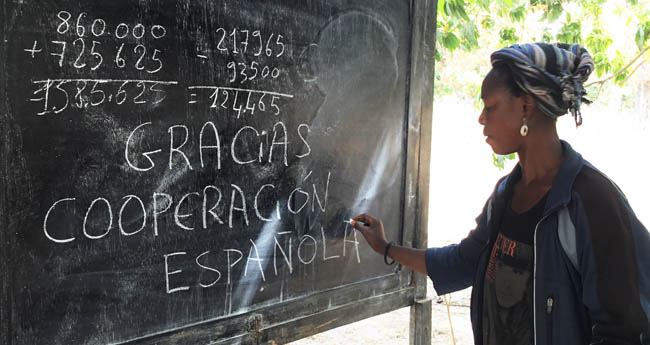 860.000
+ 725.625
= 1585.625
- 217965
93500
= 124,465
GRACIAS
COOPERACIÓN
ESPAÑOLA